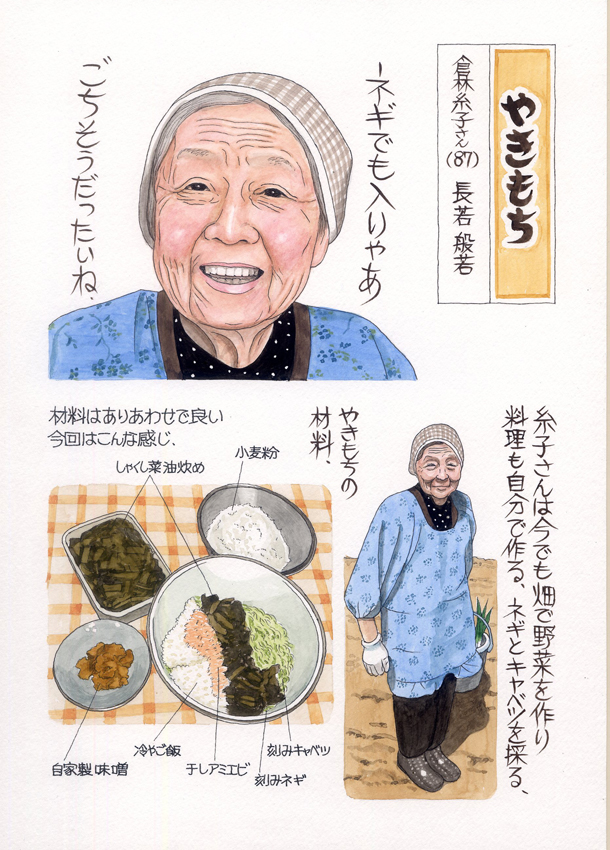 やきもち
倉林糸子さん(87) 長若 般若
ネギでも入りゃあ
ごちそうだったいね、
糸子さんは今でも畑で野菜を作り
料理も自分で作る、ネギとキャベツを採る、
やきもちの
材料、
材料はありあわせで良い
今回はこんな感じ、
小麦粉
しゃくし菜油炒め
冷やご飯
干しアミエビ
刻みキャベツ
刻みネギ
自家製味噌